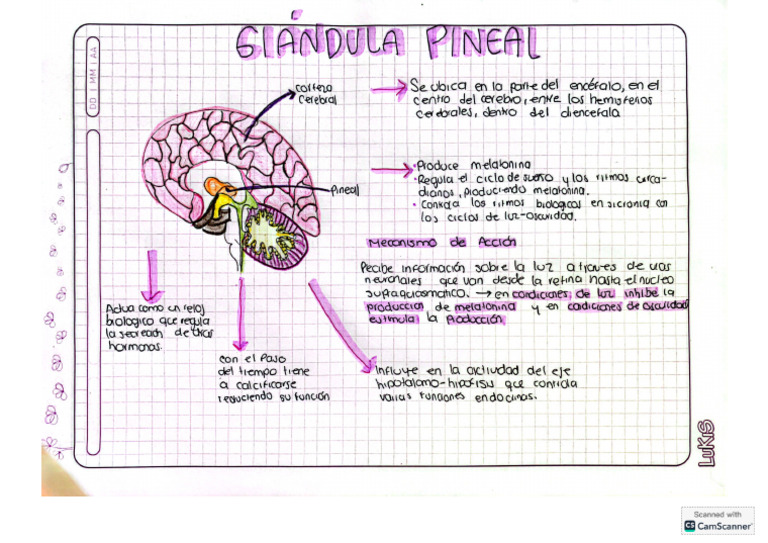 GLÁNDULA PINEAL
DD | MM | AA
corteza
cerebral
Se ubica en la parte del encéfalo, en el
centro del cerebro, entre los hemisferios
cerebrales, dentro del diencefalo
Pineal
• Produce melatonina
• Regula el ciclo de sueño y los ritmos circa-
dianos, produciendo melatonina.
• Controla los ritmos biologicos en sicronia con
los ciclos de luz-oscuridad.
Mecanismo de Acción
Recibe información sobre la luz a traves de vias
neuronales que van desde la retina hasta el nucleo
supraquiasmatico. → en condiciones de luz inhibe la
producción de melatonina y en condiciones de oscuridad
estimula la producción.
Actua como un reloj
biologico que regula
la secreción de otras
hormonas.
con el paso
del tiempo tiene
a calcificarse
reduciendo su función
Influye en la actividad del eje
hipotalamo-hipofisis que controla
varias funciones endocrinas.
LUKIS
Scanned with
CS CamScanner